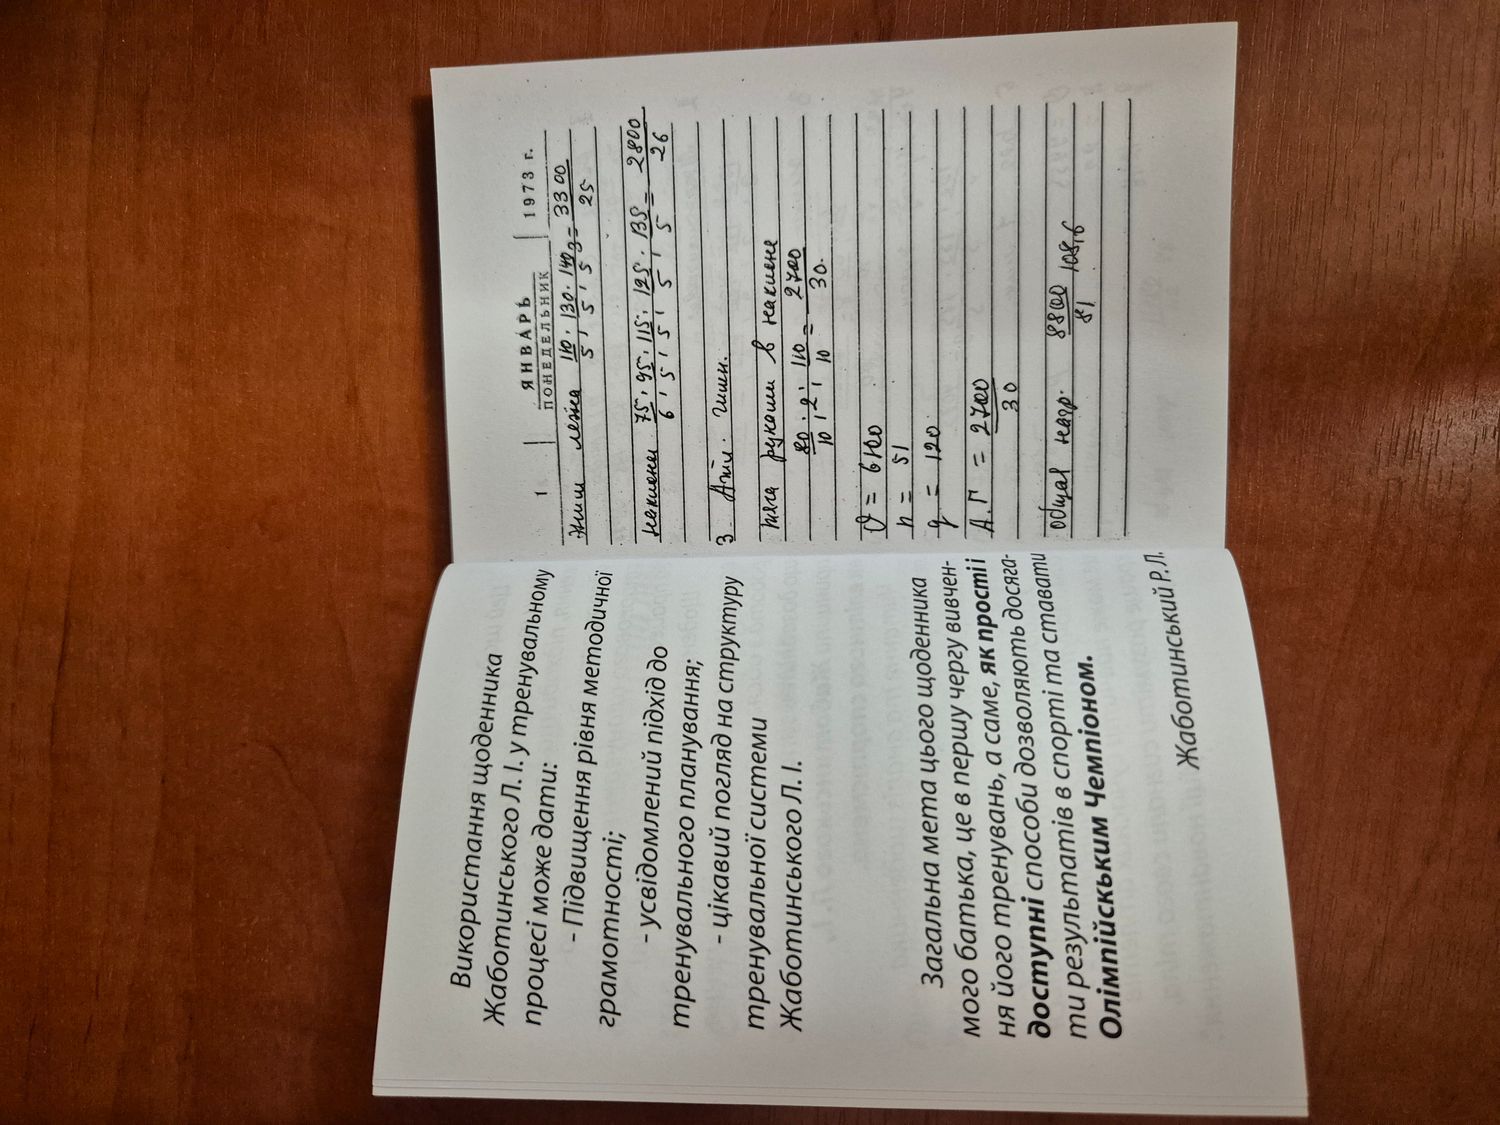 Використання щоденника
Жаботинського Л. І. у тренувальному
процесі може дати:
- Підвищення рівня методичної
грамотності;
- усвідомлений підхід до
тренувального планування;
- цікавий погляд на структуру
тренувальної системи
Жаботинського Л. І.
Загальна мета цього щоденника
мого батька, це в першу чергу вивчен-
ня його тренувань, а саме, як прості і
доступні способи дозволяють досяга-
ти результатів в спорті та ставати
Олімпійським Чемпіоном.
Жаботинський Р.Л.
1 ЯНВАРЬ 1973 г.
ПОНЕДЕЛЬНИК
Жим лежа 110. 130. 140 = 3300
5, 5, 5 25
наклоны 75. 95. 115. 125. 135 = 2800
6, 5, 5, 5, 5 26
3.
тяга руками в наклоне
80. 2. 110 = 2700
10, 2, 10 30.
= 6100
n = 51
q = 120
А.Г = 2700
30
общая нагр. 8800 108,6
81